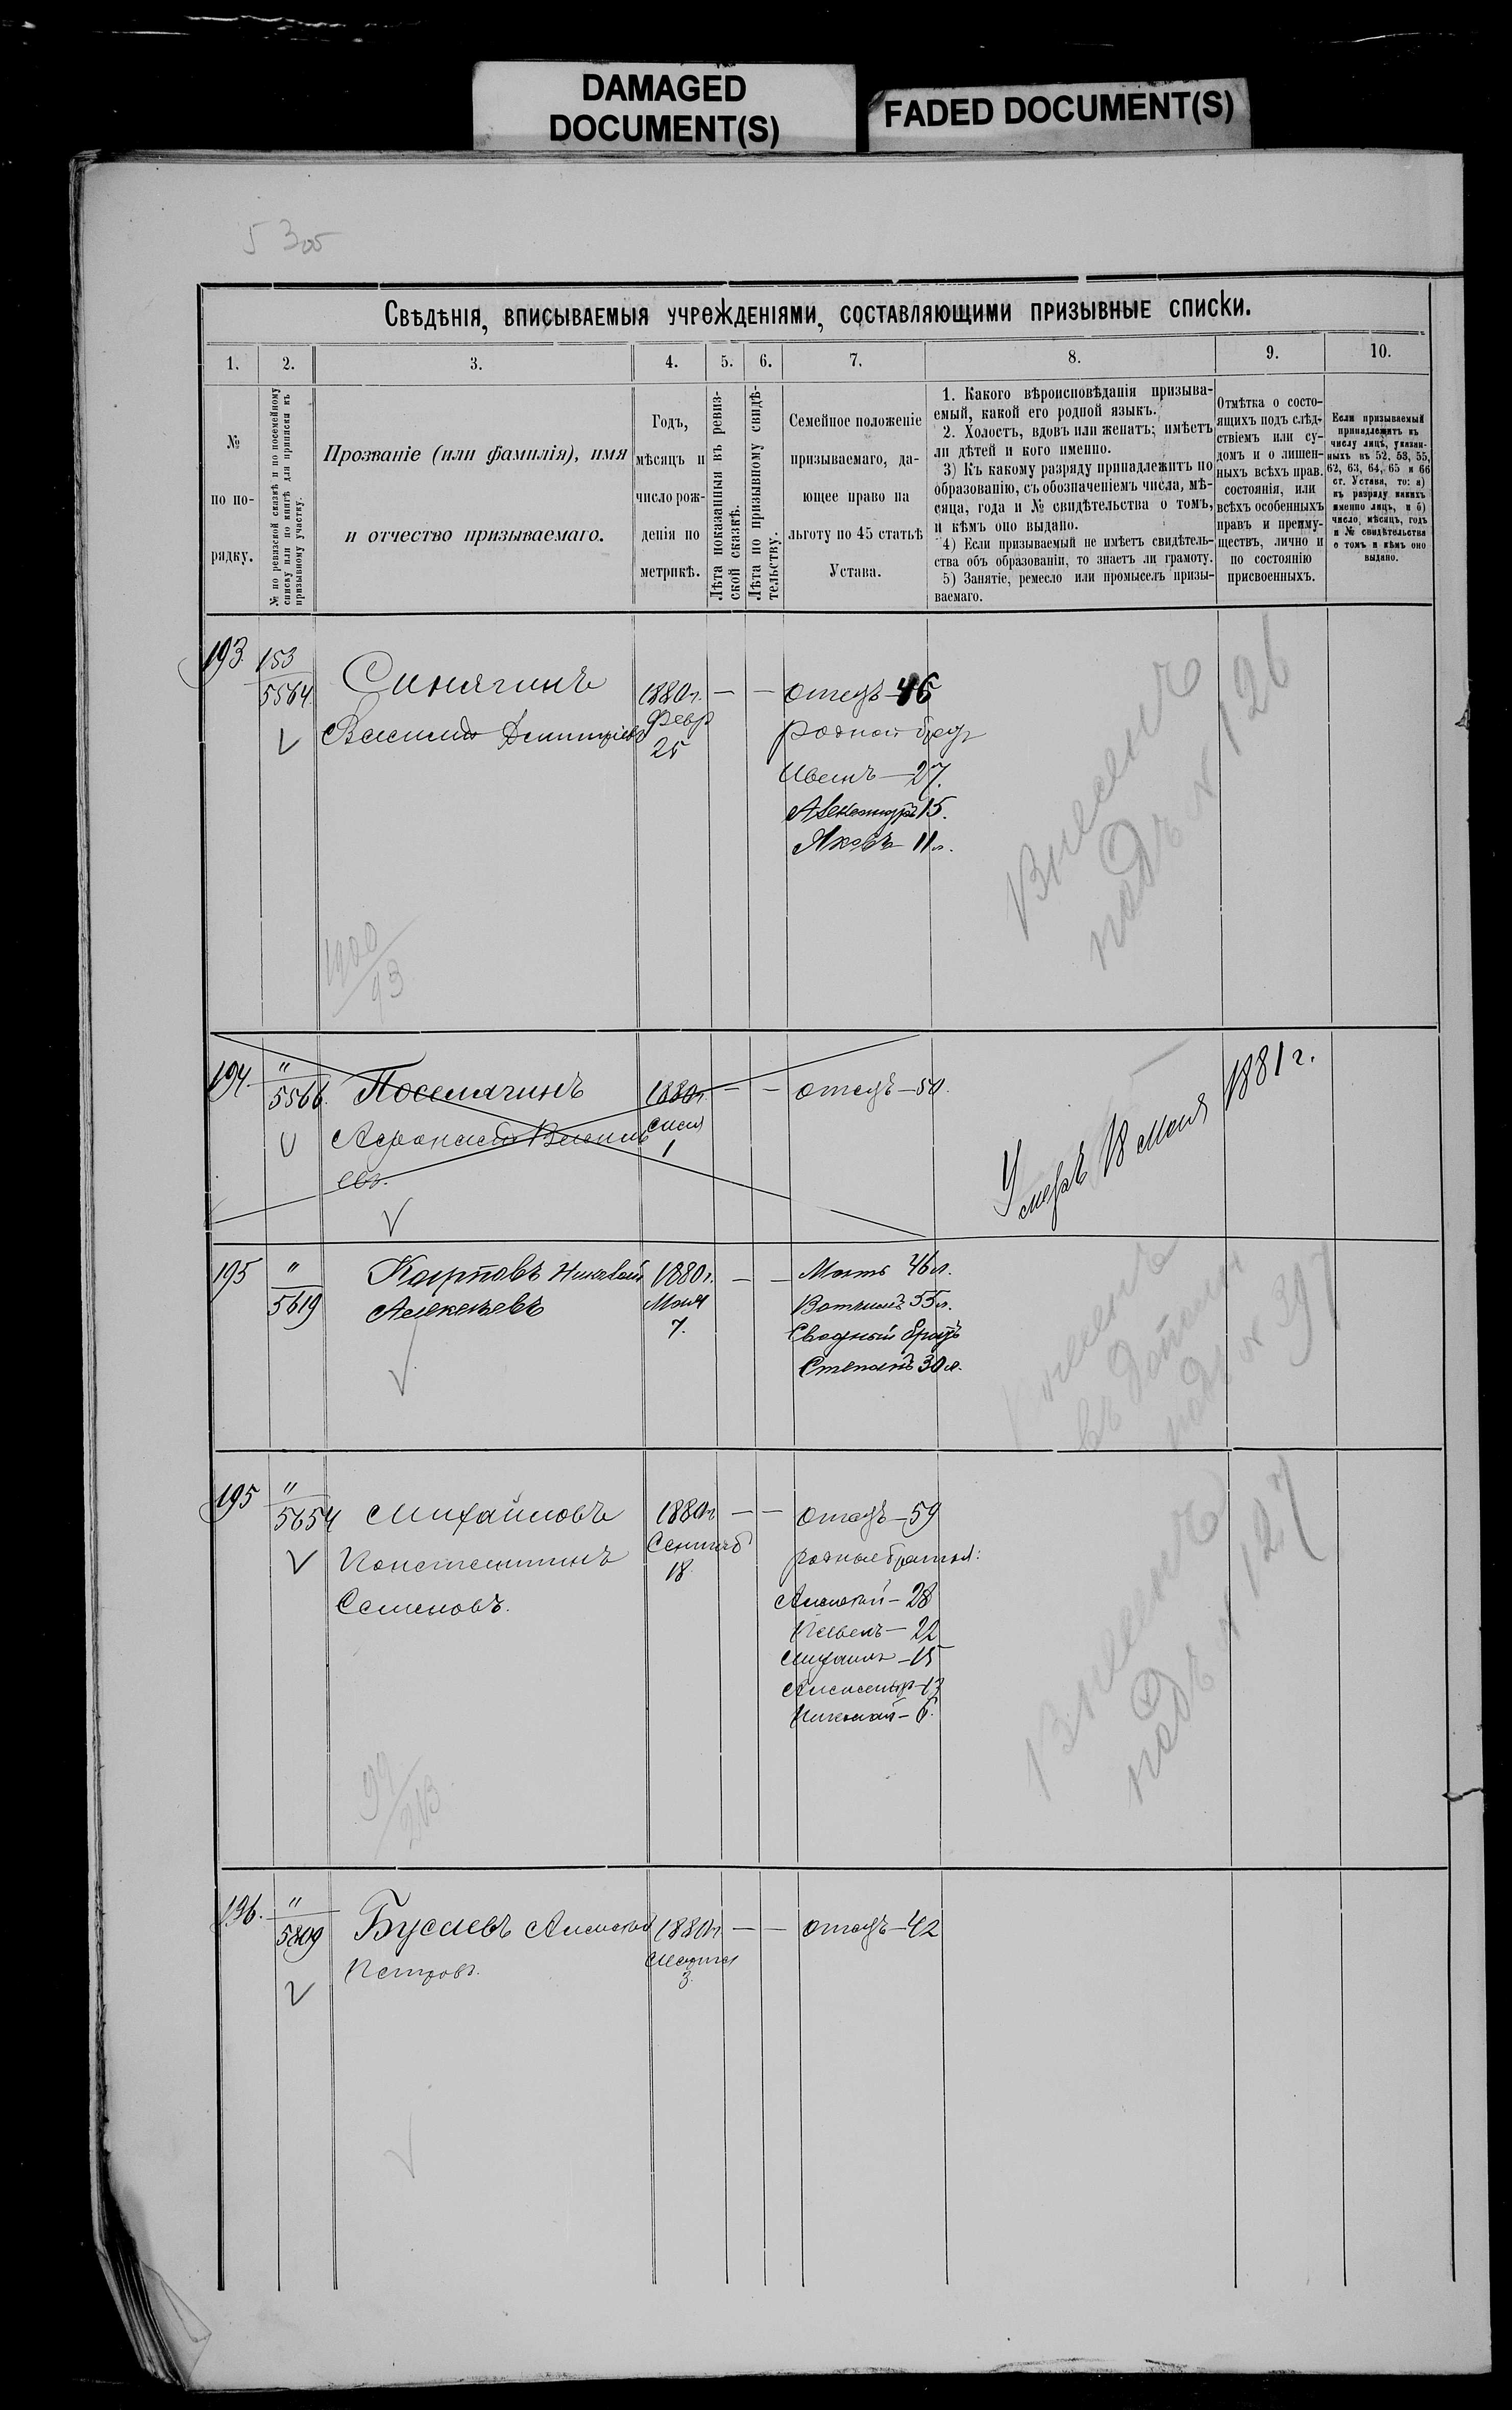 DAMAGED
DOCUMENT(S)
FADED DOCUMENT(S)
5 305
Свѣдѣнія, вписываемыя учрежденіями, составляющими призывные списки.
1.
2.
3.
4.
5.
6.
7.
8.
9.
10.
№
по по-
рядку.
№ по ревизской сказкѣ и по посемейному
списку или по книгѣ для приписки къ
призывному участку.
Прозваніе (или фамилія), имя
и отчество призываемаго.
Годъ,
мѣсяцъ и
число рож-
денія по
метрикѣ.
Лѣта показанныя въ ревиз-
ской сказкѣ.
Лѣта по призывному свидѣ-
тельству.
Семейное положеніе
призываемаго, да-
ющее право на
льготу по 45 статьѣ
Устава.
1. Какого вѣроисповѣданія призыва-
емый, какой его родной языкъ.
2. Холостъ, вдовъ или женатъ; имѣетъ
ли дѣтей и кого именно.
3) Къ какому разряду принадлежитъ по
образованію, съ обозначеніемъ числа, мѣ-
сяца, года и № свидѣтельства о томъ,
и кѣмъ оно выдано.
4) Если призываемый не имѣетъ свидѣтель-
ства объ образованіи, то знаетъ ли грамоту.
5) Занятіе, ремесло или промыселъ призы-
ваемаго.
Отмѣтка о состо-
ящихъ подъ слѣд-
ствіемъ или су-
домъ и о лишен-
ныхъ всѣхъ прав.
состоянія, или
всѣхъ особенныхъ
правъ и преиму-
ществъ, лично и
по состоянію
присвоенныхъ.
Если призываемый
принадлежитъ къ
числу лицъ, указан-
ныхъ въ 52, 53, 55,
62, 63, 64, 65 и 66
ст. Устава, то: а)
къ разряду какихъ
именно лицъ, и б)
число, мѣсяцъ, годъ
и № свидѣтельства
о томъ и кѣмъ оно
выдано.
193.
153
5564.
Синягинъ
Василій Димитріевъ
1880 г.
Февр
25
—
—
отецъ—46
родной брат
Иванъ—27.
Александръ 15.
Яковъ—11 л.
Внесенъ
подъ № 126
1900
93
194.
"
5566.
Поселягинъ
Афанасій Василь
евъ.
1880 г.
1
—
—
отецъ—50.
Умеръ 18 Мая 1881 г.
195
"
5619
Карповъ Николай
Алексѣевъ
1880 г.
Мая
7.
—
—
Мать 46 л.
Вотчимъ 55 л.
Сводный братъ
Степанъ 30 л.
Внесенъ
въ
подъ № 397
195
"
5654
Михайловъ
Константинъ
Семеновъ.
1880 г
Сентяб
18.
—
—
отецъ—59
родные братья:
Алексѣй—28
Павелъ—22
Михаилъ—15
Александръ—13
Николай—6.
Внесенъ
подъ № 127
99
213
196.
"
5809
Бусаевъ Алексѣй
Петровъ.
1880 г
Марта
3.
—
—
отецъ—42